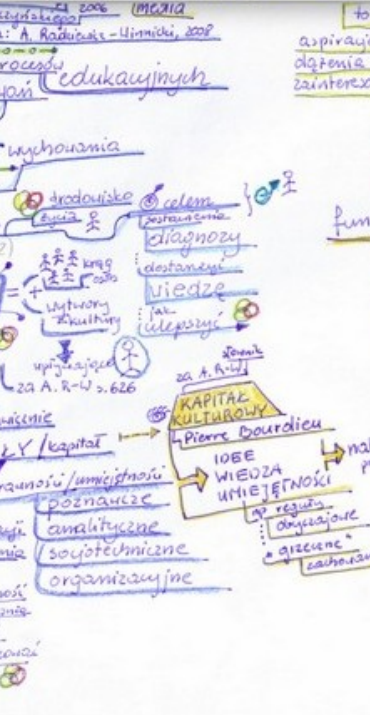 2006 media
A. Radziewicz-Winnicki, 2008
procesów
edukacyjnych
wychowania
środowisko
życia
celem
postawienie
diagnozy
dostarczyć
wiedzę
jak
ulepszyć
krąg
osób
= +
wytwory
kultury
za A. R-W s. 626
słownik
za A. R-W
KAPITAŁ
KULTUROWY
Pierre Bourdieu
IDEE
WIEDZA
UMIEJĘTNOŚCI
np reguły
obyczajowe
"grzeczne"
zachowan
ŁY /kapitał
rawności/umiejętności
poznawcze
analityczne
socjotechniczne
organizacyjne
aspiracje
dążenia
zainteres
fun